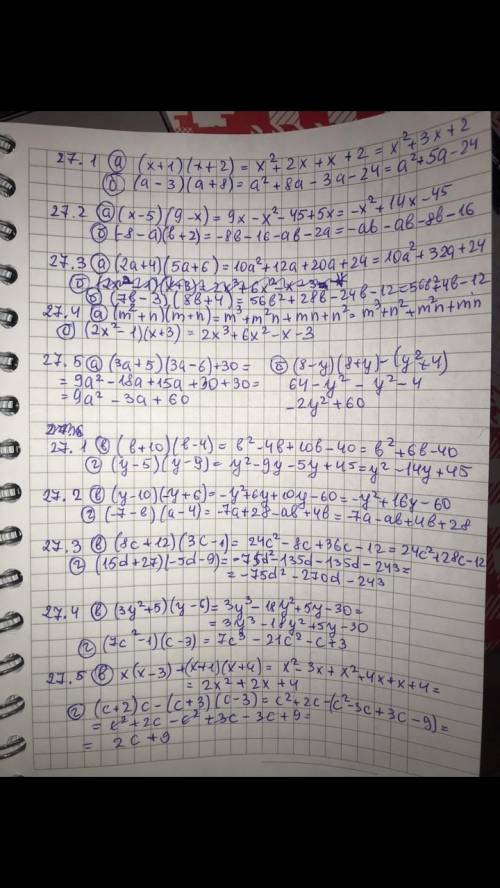 27.1 а) (x+1)(x+2) = x²+2x+x+2 = x²+3x+2
б) (a-3)(a+8) = a²+8a-3a-24 = a²+5a-24
27.2 а) (x-5)(9-x) = 9x-x²-45+5x = -x²+14x-45
б) (-8-a)(b+2) = -8b-16-ab-2a = -ab-ab-8b-16
27.3 а) (2a+4)(5a+6) = 10a²+12a+20a+24 = 10a²+32a+24
б) (7b-3)(8b+4) = 56b²+28b-24b-12 = 56b74b-12
27.4 а) (m²+n)(m+n) = m³+m²n+mn+n² = m³+n²+m²n+mn
б) (2x²-1)(x+3) = 2x³+6x²-x-3
27.5 а) (3a+5)(3a-6)+30 = б) (8-y)(8+y)-(y²+4)
= 9a²-18a+15a+30+30 = 64-y²-y²-4
= 9a²-3a+60 -2y²+60
27.1 в) (b+10)(b-4) = b²-4b+10b-40 = b²+6b-40
г) (y-5)(y-9) = y²-9y-5y+45 = y²-14y+45
27.2 в) (y-10)(-y+6) = -y²+6y+10y-60 = -y²+16y-60
г) (-7-b)(a-4) = -7a+28-ab+4b = -7a-ab+4b+28
27.3 в) (8c+12)(3c-1) = 24c²-8c+36c-12 = 24c²+28c-12
г) (15d+27)(-5d-9) = -75d²-135d-135d-243 =
= -75d²-270d-243
27.4 в) (3y²+5)(y-6) = 3y³-18y²+5y-30 =
= 3y³-18y²+5y-30
г) (7c²-1)(c-3) = 7c³-21c²-c+3
27.5 в) x(x-3)+(x+1)(x+4) = x²-3x+x²+4x+x+4 =
= 2x²+2x+4
г) (c+2)c-(c+3)(c-3) = c²+2c-(c²-3c+3c-9) =
= c²+2c-c²+3c-3c+9 =
= 2c+9